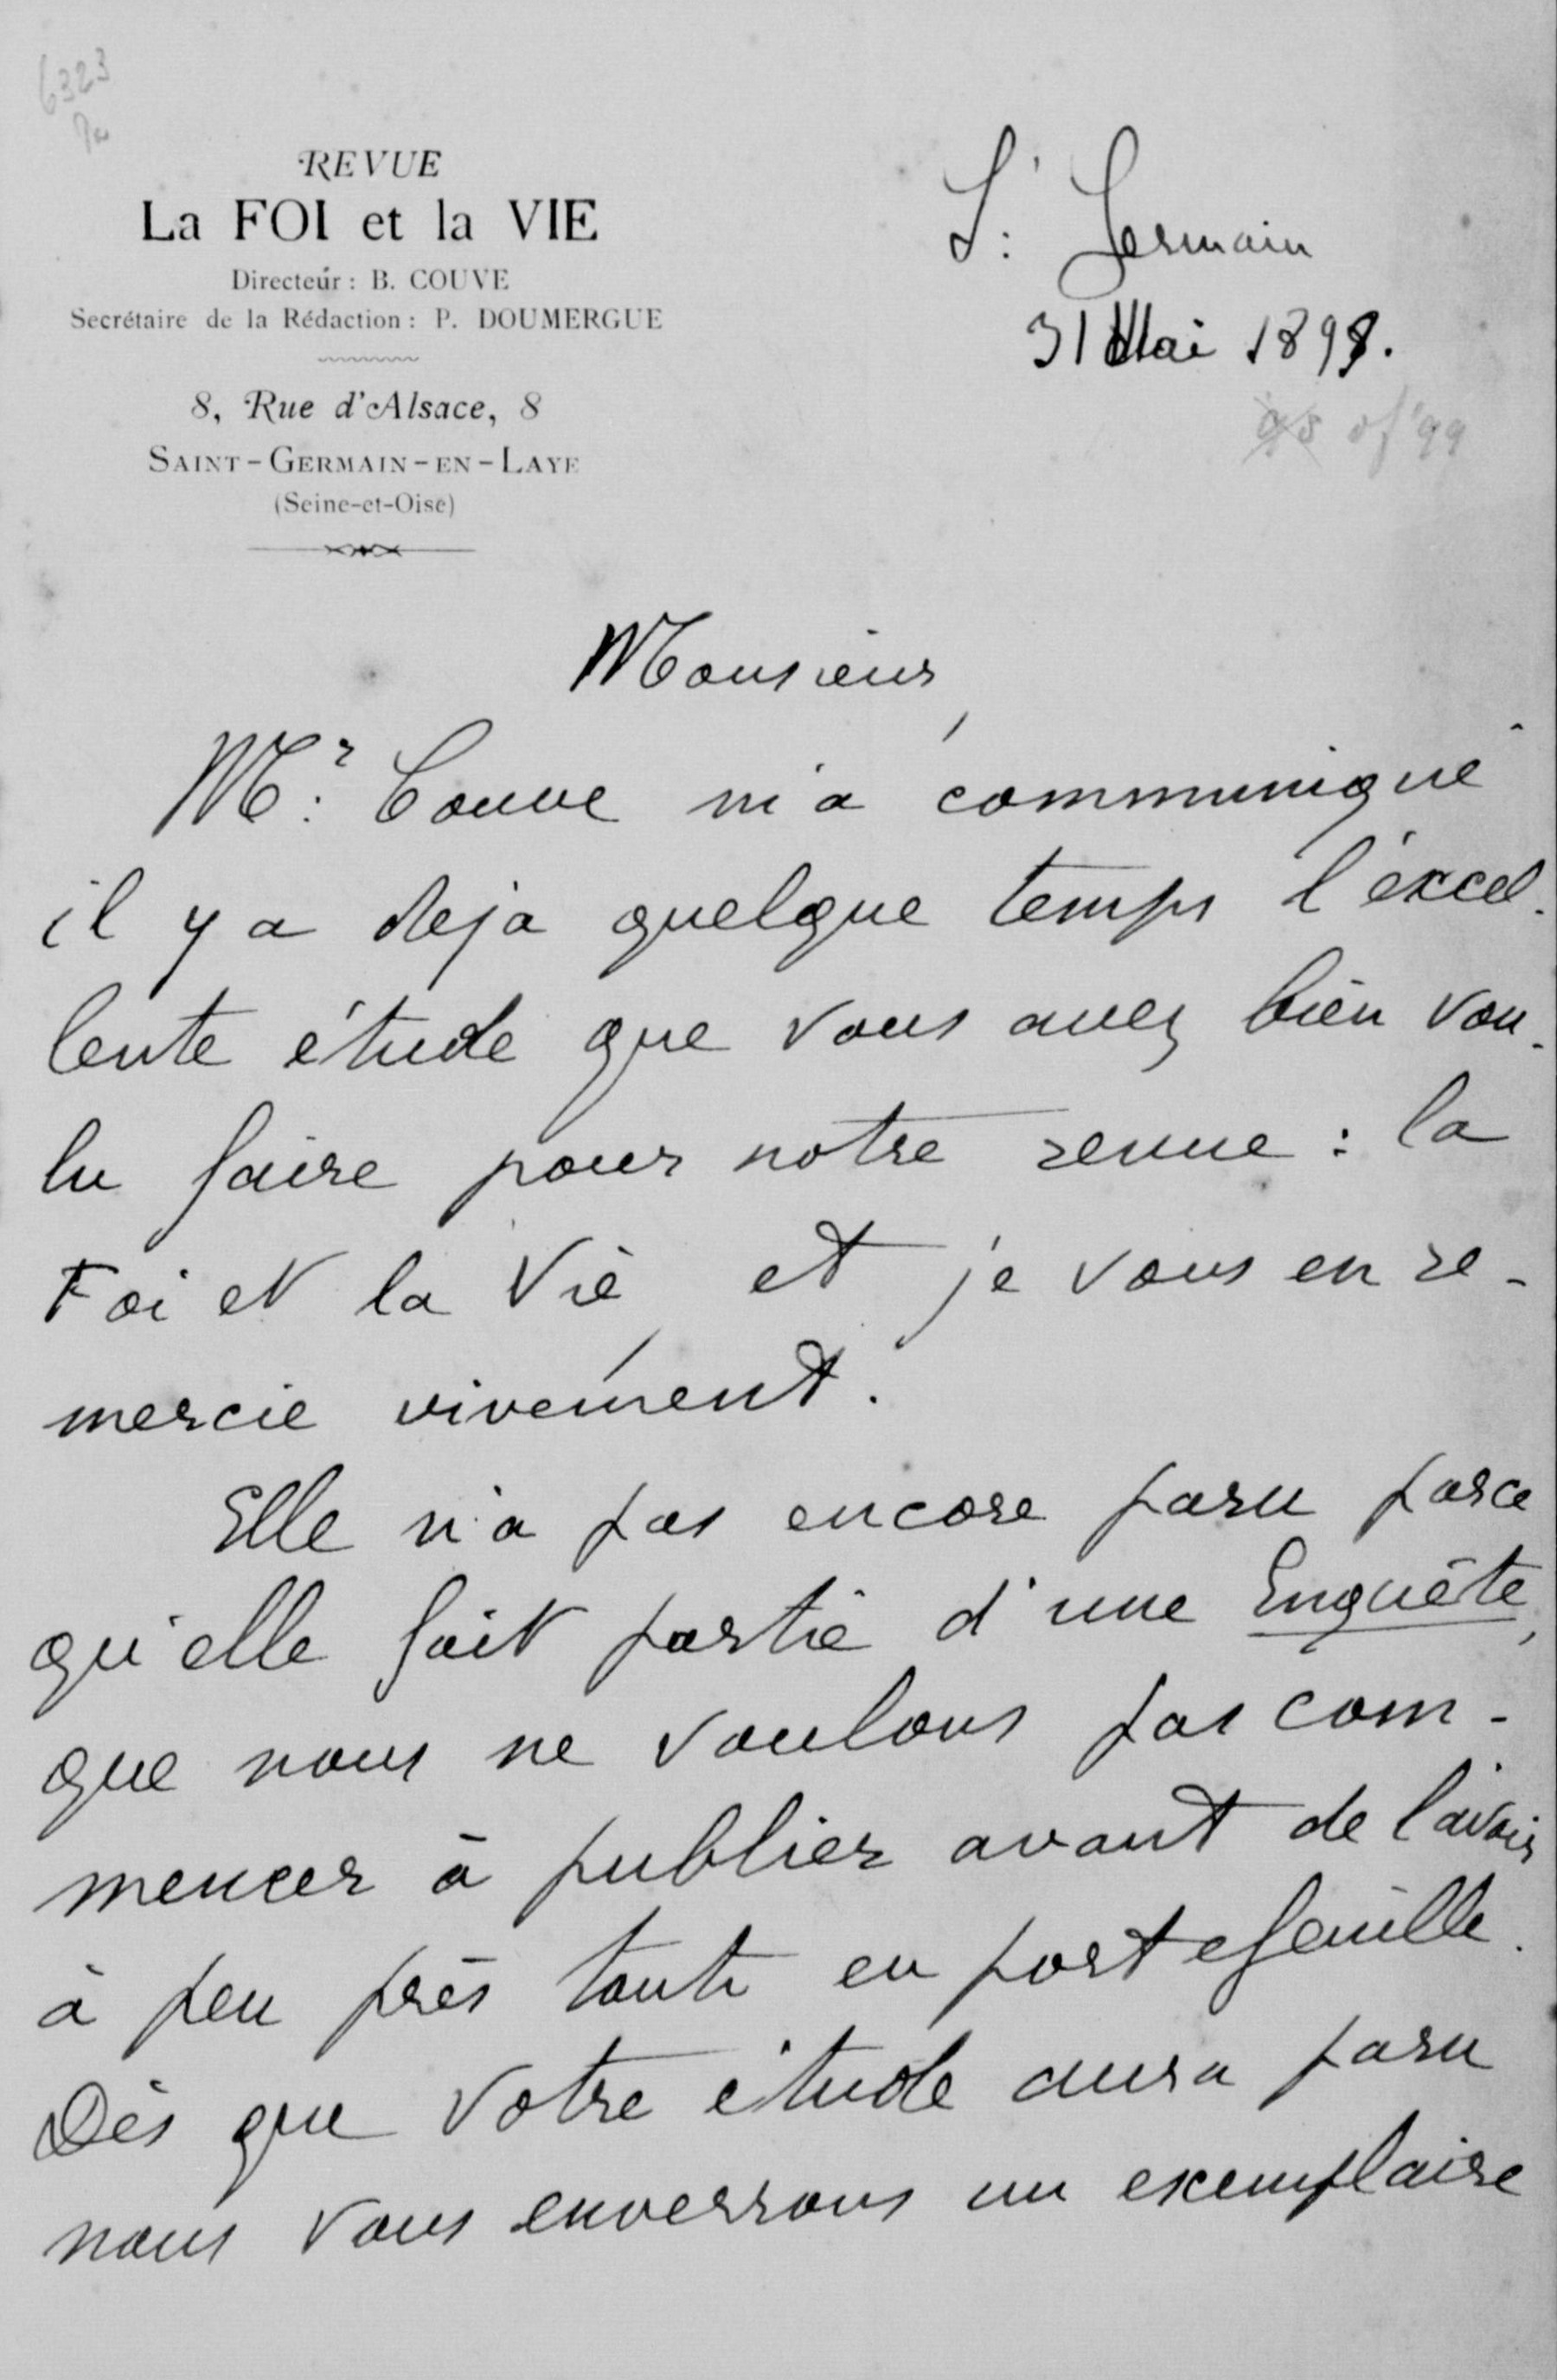 6323
REVUE
La FOI et la VIE
Directeur : B. COUVE
Secrétaire de la Rédaction : P. DOUMERGUE
8, Rue d'Alsace, 8
SAINT-GERMAIN-EN-LAYE
(Seine-et-Oise)
St Germain
31 Mai 1898.
98 of '99
Monsieur,
Mr. Couve m'a communiqué
il y a deja quelque temps l'excel-
lente étude que vous avez bien vou-
lu faire pour notre revue : la
Foi et la Vie, et je vous en re-
mercie vivement.
Elle n'a pas encore paru parce
qu'elle fait partie d'une Enquête,
que nous ne voulons pas com-
mencer à publier avant de l'avoir
à peu près toute en portefeuille.
Dès que votre étude aura paru
nous vous enverrons un exemplaire